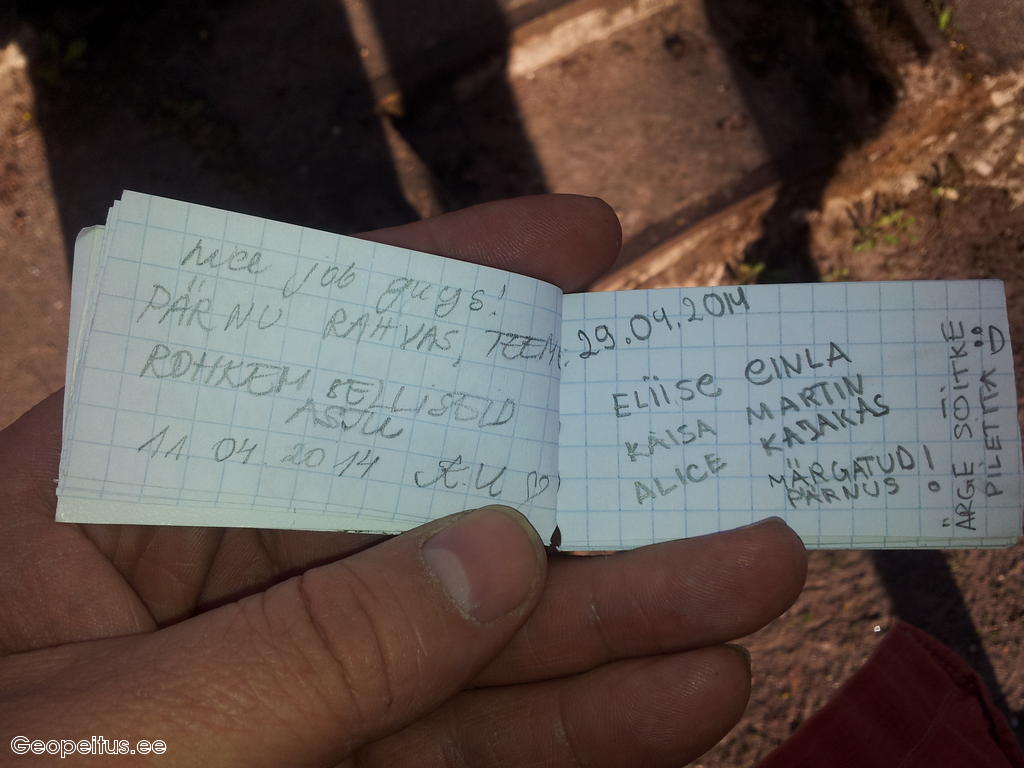 nice job guys!
PÄRNU RAHVAS, TEEME
ROHKEM SELLISEID
ASJU
11.04.2014 A.U ♡
29.04.2014
ELIISE EINLA
KAISA MARTIN
ALICE KAJAKAS
MÄRGATUD
PÄRNUS !
ÄRGE SÕITKE
PILETITA :D
Geopeitus.ee